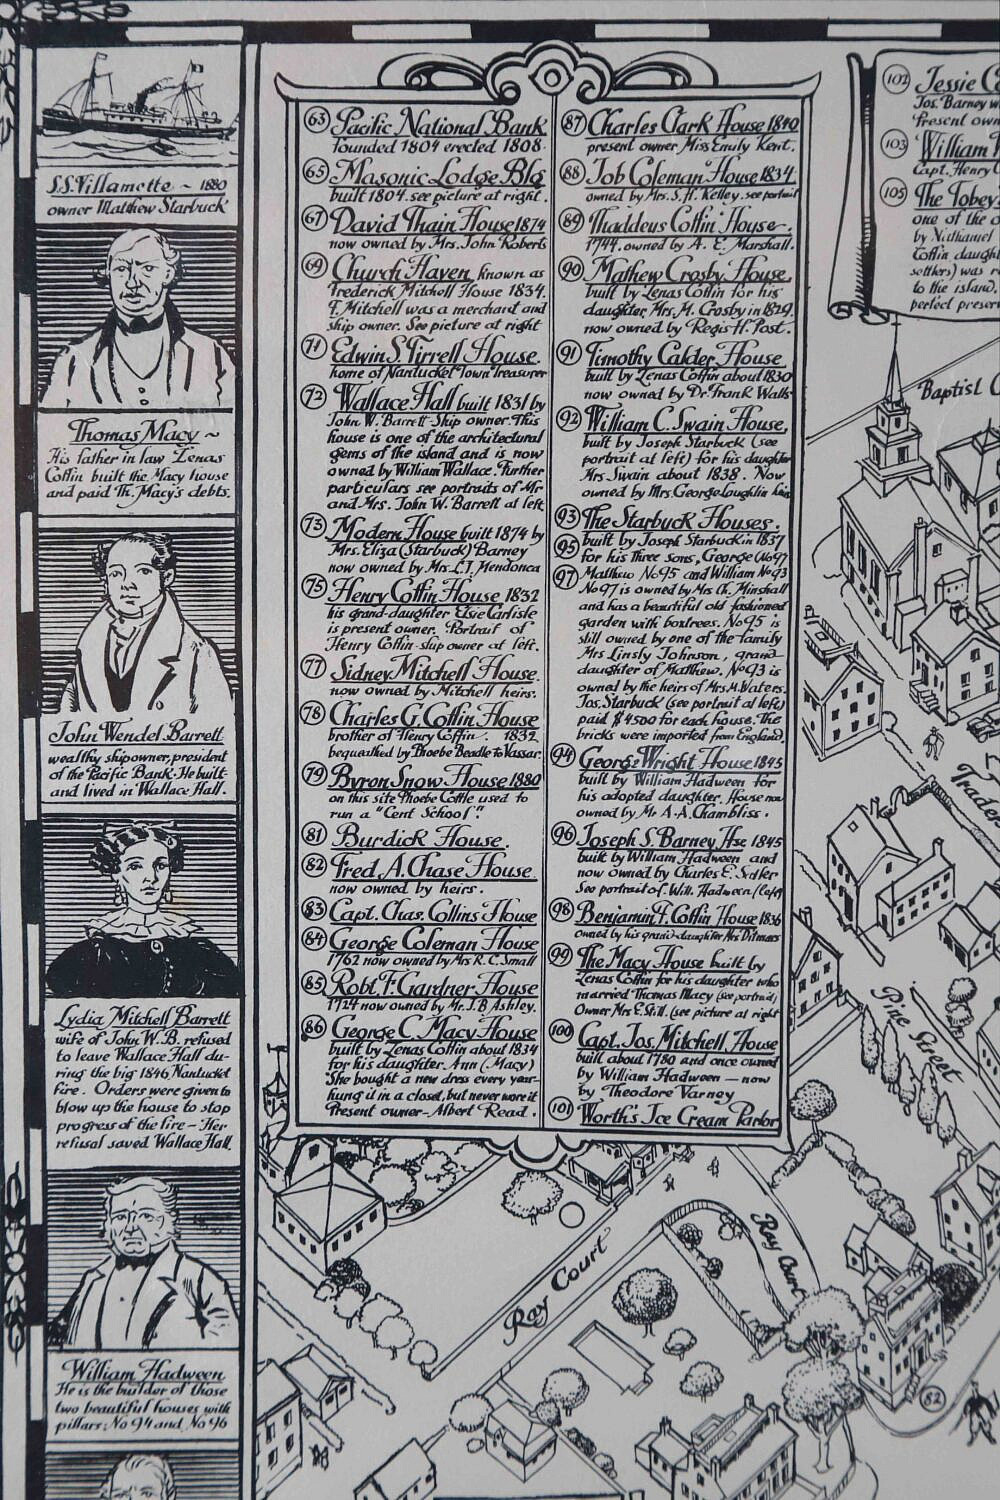 S.S. Villamette ~ 1880
owner Matthew Starbuck
Thomas Macy ~
His father in law Zenas
Coffin built the Macy house
and paid Th. Macy's debts.
John Wendel Barrett
wealthy shipowner, president
of the Pacific Bank. He built
and lived in Wallace Hall.
Lydia Mitchell Barrett
wife of John W. B. refused
to leave Wallace Hall du-
ring the big 1846 Nantucket
fire. Orders were given to
blow up the house to stop
progress of the fire - Her
refusal saved Wallace Hall.
William Hadween
He is the builder of those
two beautiful houses with
pillars, No 94 and No 96
63 Pacific National Bank
founded 1804 erected 1808.
65 Masonic Lodge Blg
built 1804. see picture at right.
67 David Thain House 1874
now owned by Mrs. John Roberts
69 Church Haven, known as
Frederick Mitchell House 1834.
F. Mitchell was a merchant and
ship owner. See picture at right
71 Edwin S. Tirrell House.
home of Nantucket Town Treasurer
72 Wallace Hall built 1831 by
John W. Barrett - Ship owner. This
house is one of the architectural
gems of the island and is now
owned by William Wallace. Further
particulars see portraits of Mr
and Mrs. John W. Barrett at left
73 Modern House built 1874 by
Mrs. Eliza (Starbuck) Barney
now owned by Mrs. L.J. Mendonca
75 Henry Coffin House 1832
his grand-daughter Elsie Carlisle
is present owner. Portrait of
Henry Coffin - ship owner at left.
77 Sidney Mitchell House.
now owned by Mitchell heirs.
78 Charles G. Coffin House
brother of Henry Coffin. 1832
bequeathed by Phoebe Beadle to Vassar
79 Byron Snow House 1880
on this site Phoebe Coffle used to
run a "Cent School".
81 Burdick House.
82 Fred. A. Chase House.
now owned by heirs.
83 Capt. Chas. Collins House
84 George Coleman House
1762 now owned by Mrs R. C. Small
85 Robt F. Gardner House
1724 now owned by Mr. J. B Ashley.
86 George C. Macy House
built by Zenas Coffin about 1834
for his daughter. Ann (Macy)
She bought a new dress every year-
hung it in a closet, but never wore it
Present owner - Albert Read.
87 Charles Clark House 1840
present owner Miss Emily Kent.
88 Job Coleman House 1834.
owned by Mrs. S. H. Kelley. see portrait
89 Thaddeus Coffin House -
1744. owned by A. E. Marshall.
90 Mathew Crosby House.
built by Zenas Coffin for his
daughter, Mrs. M. Crosby in 1829.
now owned by Regis H. Post.
91 Timothy Calder House
built by Zenas Coffin about 1830
now owned by Dr. Frank Walls
92 William C. Swain House,
built by Joseph Starbuck (see
portrait at left) for his daughter
Mrs. Swain about 1838. Now
owned by Mrs. George Loughlin heirs
93 The Starbuck Houses.
95 built by Joseph Starbuck in 1837
for his three sons, George (No 97
97 Matthew No 95 and William No 93
No 97 is owned by Mrs Ch. Minshall
and has a beautiful old fashioned
garden with boxtrees. No 95 is
still owned by one of the family
Mrs Linsly Johnson, grand
daughter of Matthew. No 93 is
owned by the heirs of Mrs. M. Waters.
Jos. Starbuck (see portrait at left)
paid $4500 for each house. The
bricks were imported from England.
94 George Wright House 1845
built by William Hadween for
his adopted daughter. House now
owned by Mr A. A. Chambliss.
96 Joseph S. Barney Hse 1845
built by William Hadween and
now owned by Charles E. Satler
See portrait of Will. Hadween (left)
98 Benjamin F. Coffin House 1836
owned by his grand-daughter Mrs Ditmars
99 The Macy House built by
Zenas Coffin for his daughter who
married Thomas Macy (see portrait)
Owner Mrs E. Still. (see picture at right
100 Capt. Jos. Mitchell House
built about 1780 and once owned
by William Hadween - now
by Theodore Varney
101 Worth's Ice Cream Parlor
102 Jessie C
Jos. Barney w
Present own
103 William
Capt. Henry C
105 The Tobey
one of the
by Nathaniel
Coffin daught
settlers) was
to the island.
perfect preser
Baptist C
Traders
Pine Street
Ray Court
Ray Court
82